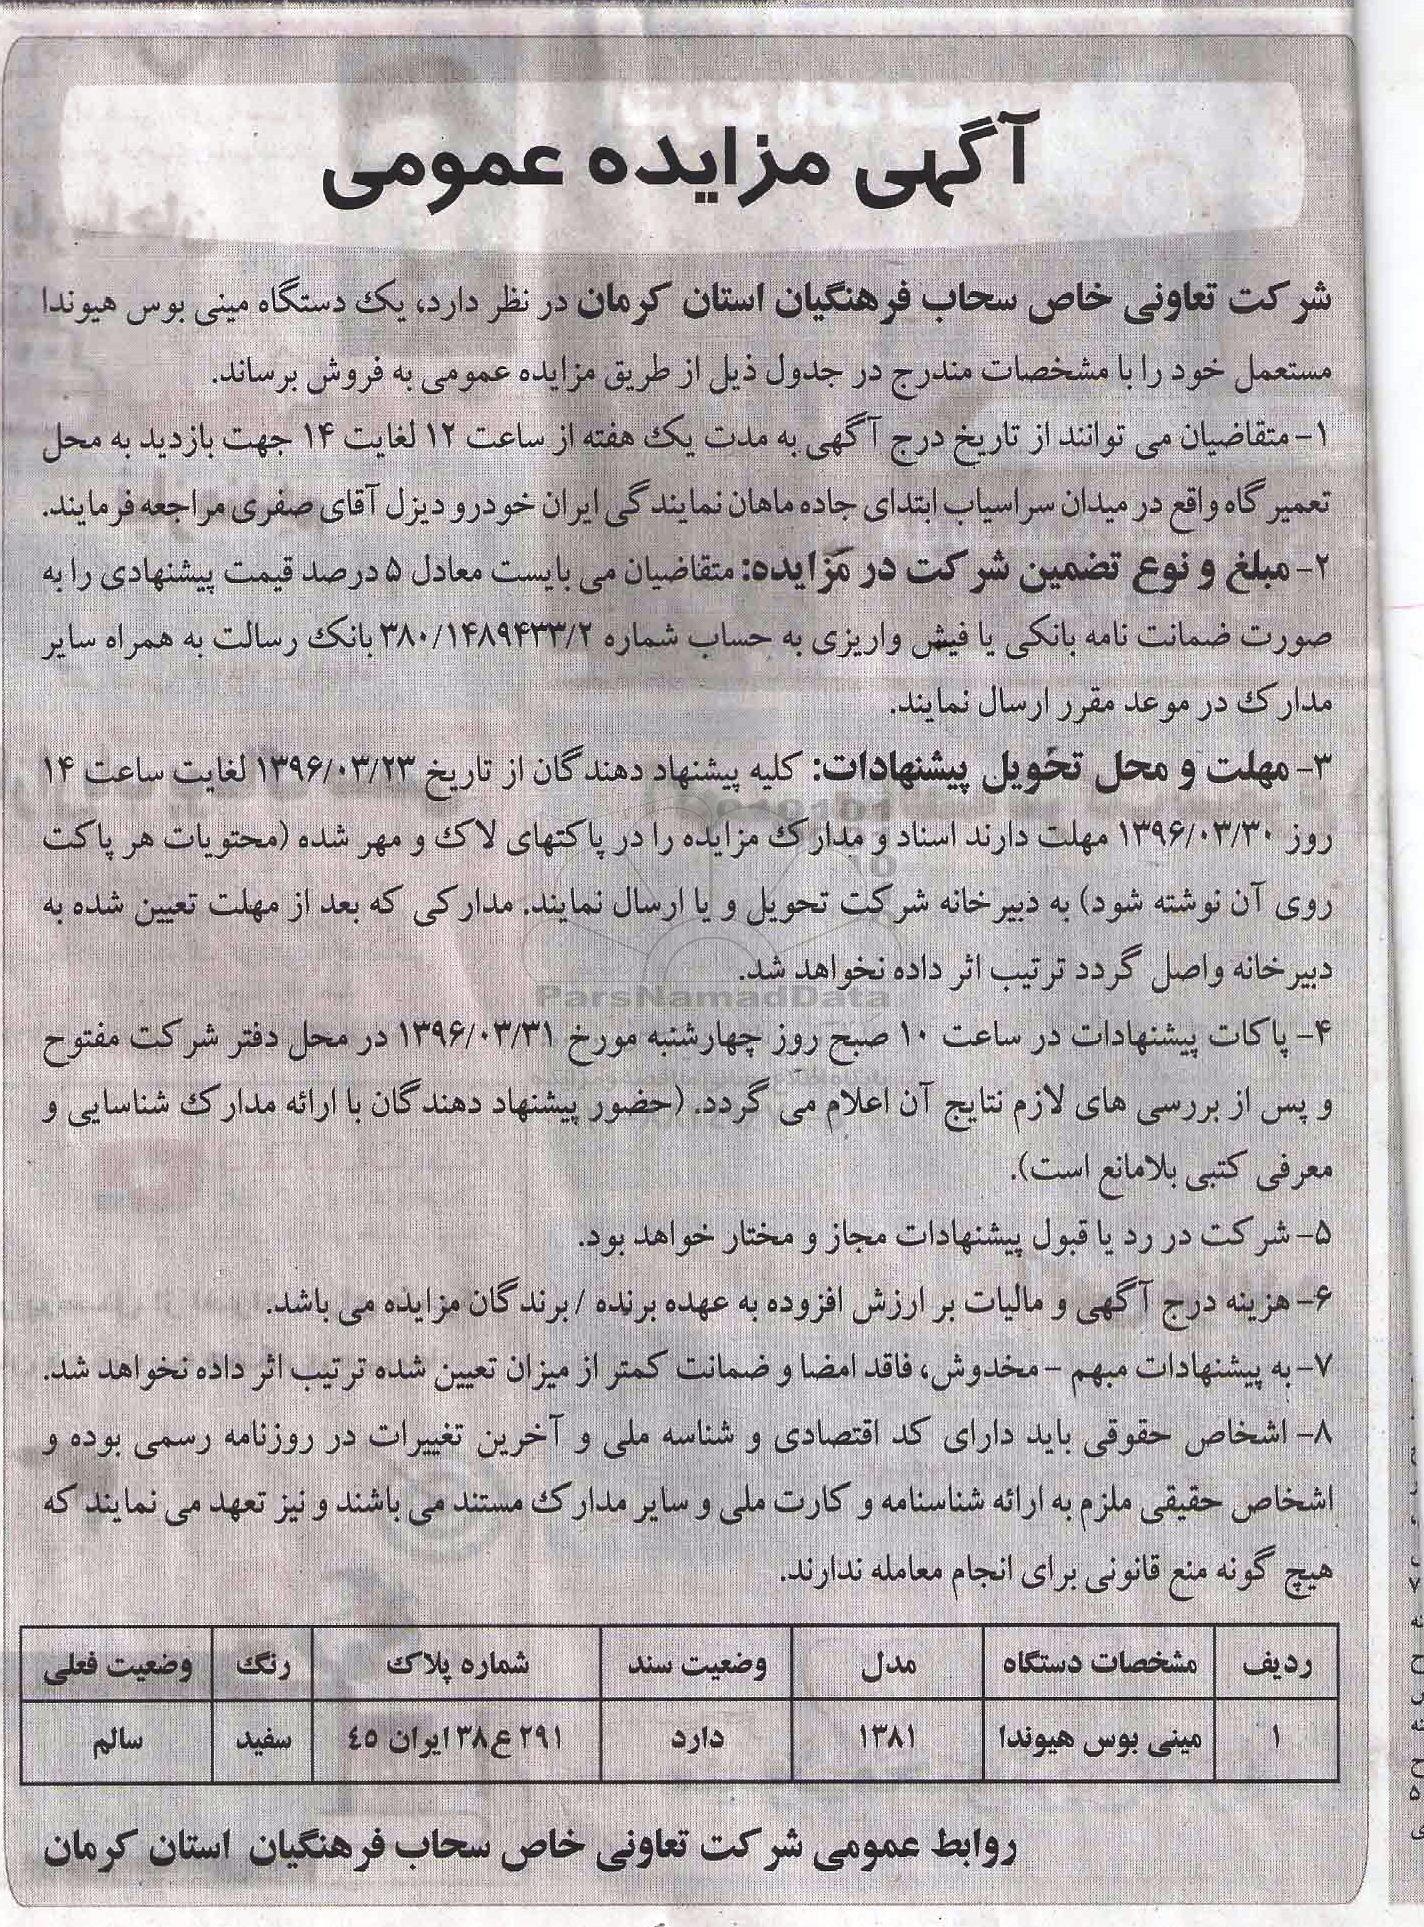 آگهی مزایده عمومی
شرکت تعاونی خاص سحاب فرهنگیان استان کرمان در نظر دارد، یک دستگاه مینی بوس هیوندا
مستعمل خود را با مشخصات مندرج در جدول ذیل از طریق مزایده عمومی به فروش برساند.
۱- متقاضیان می توانند از تاریخ درج آگهی به مدت یک هفته از ساعت ۱۲ لغایت ۱۴ جهت بازدید به محل
تعمیرگاه واقع در میدان سراسیاب ابتدای جاده ماهان نمایندگی ایران خودرو دیزل آقای صفری مراجعه فرمایند.
۲- مبلغ و نوع تضمین شرکت در مزایده: متقاضیان می بایست معادل ۵ درصد قیمت پیشنهادی را به
صورت ضمانت نامه بانکی یا فیش واریزی به حساب شماره ۳۸۰/۱۴۸۹۴۳۳/۲ بانک رسالت به همراه سایر
مدارک در موعد مقرر ارسال نمایند.
۳- مهلت و محل تحویل پیشنهادات: کلیه پیشنهاد دهندگان از تاریخ ۱۳۹۶/۰۳/۲۳ لغایت ساعت ۱۴
روز ۱۳۹۶/۰۳/۳۰ مهلت دارند اسناد و مدارک مزایده را در پاکتهای لاک و مهر شده (محتویات هر پاکت
روی آن نوشته شود) به دبیرخانه شرکت تحویل و یا ارسال نمایند. مدارکی که بعد از مهلت تعیین شده به
دبیرخانه واصل گردد ترتیب اثر داده نخواهد شد.
ParsNamadData
۴- پاکات پیشنهادات در ساعت ۱۰ صبح روز چهارشنبه مورخ ۱۳۹۶/۰۳/۳۱ در محل دفتر شرکت مفتوح
و پس از بررسی های لازم نتایج آن اعلام می گردد. (حضور پیشنهاد دهندگان با ارائه مدارک شناسایی و
معرفی کتبی بلامانع است).
۵- شرکت در رد یا قبول پیشنهادات مجاز و مختار خواهد بود.
۶- هزینه درج آگهی و مالیات بر ارزش افزوده به عهده برنده / برندگان مزایده می باشد.
۷- به پیشنهادات مبهم - مخدوش، فاقد امضا و ضمانت کمتر از میزان تعیین شده ترتیب اثر داده نخواهد شد.
۸- اشخاص حقوقی باید دارای کد اقتصادی و شناسه ملی و آخرین تغییرات در روزنامه رسمی بوده و
اشخاص حقیقی ملزم به ارائه شناسنامه و کارت ملی و سایر مدارک مستند می باشند و نیز تعهد می نمایند که
هیچ گونه منع قانونی برای انجام معامله ندارند.
ردیف مشخصات دستگاه مدل وضعیت سند شماره پلاک رنگ وضعیت فعلی
۱ مینی بوس هیوندا ۱۳۸۱ دارد ۲۹۱ع۳۸ ایران ٤٥ سفید سالم
روابط عمومی شرکت تعاونی خاص سحاب فرهنگیان استان کرمان